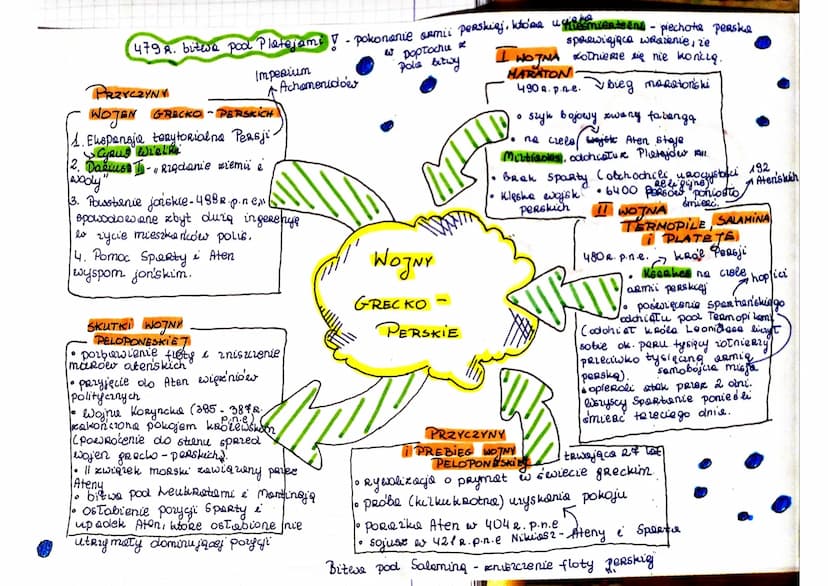 479 r. bitwa pod Platejami ! - pokonanie armii perskiej, która ucieka
w popłochu z
pola bitwy
Nieśmiertelna - piechota perska
sprawiająca wrażenie, że
żołnierze się nie kończą.
Imperium
Achemenidów
PRZYCZYNY
WOJEN GRECKO - PERSKICH
1. Ekspansja terytorialna Persji
Cyrus Wielki
2. Dariusz I - "żądanie ziemii i
wody
3. Powstanie jońskie - 498 r. p.n.e,"
spowodowane zbyt dużą ingerencję
w życie mieszkańców polis.
4. Pomoc Sparty i Aten
wyspom jońskim.
I WOJNA
MARATON
490 r. p.n.e. bieg maratoński
• szyk bojowy zwany falangą
• na czele wojsk Aten staje
Miltiades, oddział z Platejów
• Brak Sparty (obchodzili uroczystości
religijne)
• Klęska wojsk
perskich
• 6400 Persów poniosło
śmierć
192
Ateńskich
II WOJNA
TERMOPILE, SALAMINA
i PLATEJE
480 r. p.n.e. król Persji
• Kserkes na czele
armii perskiej
hoplici
• poświęcenie spartańskiego
oddziału pod Termopilami
(oddział króla Leonidasa liczył
sobie ok. paru tysięcy żołnierzy
przeciwko tysięczną armią
perską). samobójcza misja
• opierali atak przez 2 dni.
Wszyscy Spartanie ponieśli
śmierć trzeciego dnia.
WOJNY
GRECKO -
PERSKIE
SKUTKI WOJNY
PELOPONESKIEJ
• pozbawienie floty i zniszczenie
murów ateńskich
• przyjęcie do Aten więźniów
politycznych
• Wojna Koryncka (395 - 387 r.
p.n.e)
zakończona pokojem królewskim
(powrócenie do stanu sprzed
wojen grecko - perskich).
• II związek morski zawiązany przez
Ateny
• bitwa pod Leuktrami i Mantineją
• osłabienie pozycji Sparty i
upadek Aten, które osłabione nie
utrzymały dominującej pozycji
PRZYCZYNY
i PRZEBIEG WOJNY
PELOPONESKIEJ
trwająca 27 lat
• rywalizacja o prymat w świecie greckim.
• próba (kilkukrotna) uzyskania pokoju
• porażka Aten w 404 r. p.n.e
• sojusz w 421 r. p.n.e Nikiasz - Ateny i Sparta
Bitwa pod Salaminą - zniszczenie floty perskiej